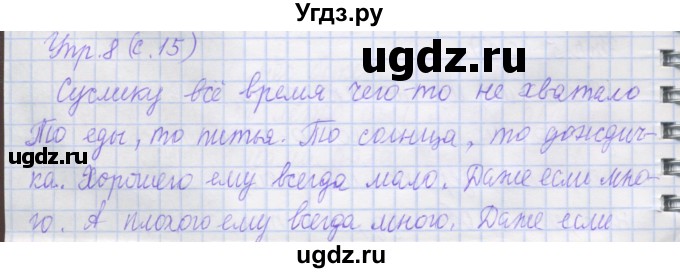 Угдз.ру
Упр. 8 (с. 15)
ugdz.ru
ugdz.ru
Суслику всё время чего-то не хватало
То еды, то питья. То солнца, то дождич-
ugdz.ru
ка. Хорошего ему всегда мало. Даже если мно-
го. А плохого ему всегда много. Даже если
ugdz.ru
ugdz.ru